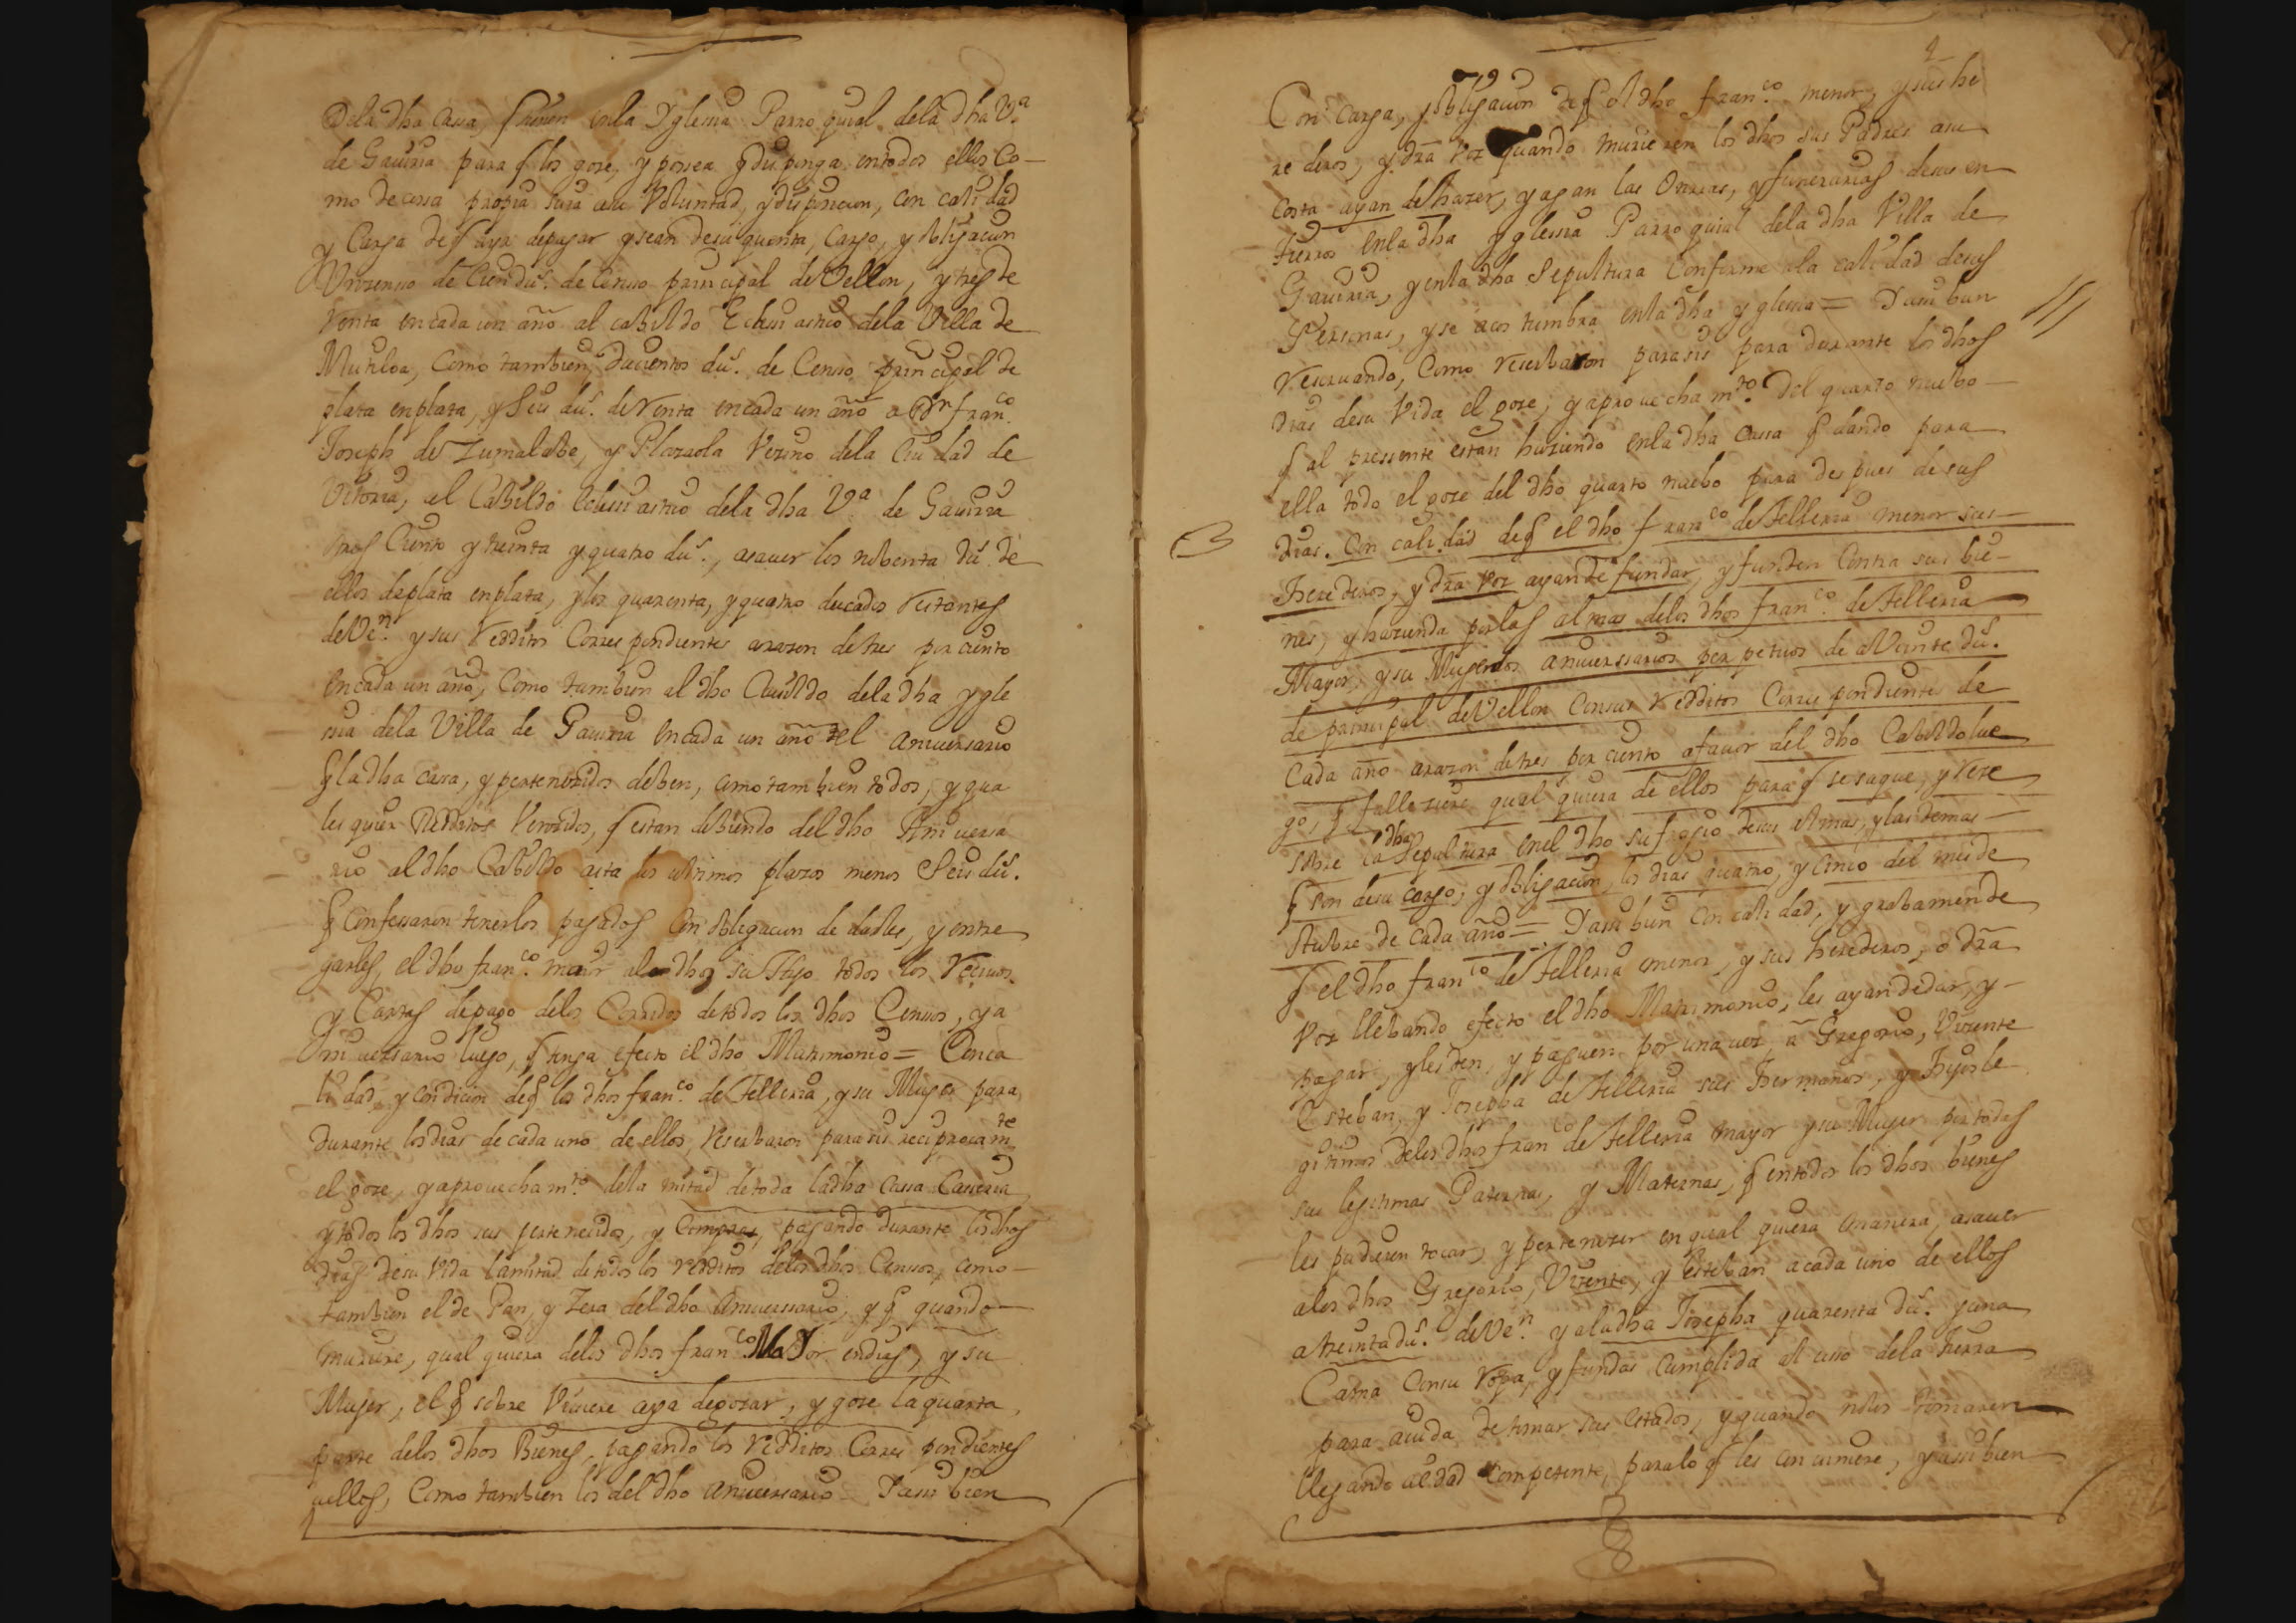 Dela dha Cassa, q̃ tienen enla Yglesia Parroquial dela dha Vª
de Gauiria para q̃ los goze, y possea y disponga entodos ellos Co-
mo de cossa propia suia asu Voluntad, y dispossicion, con calidad
y Carga de q̃ aya depagar y sean desu quenta, Cargo, y obligacion
de Cien du.s de Censo principal de Vellon, y tres de
Renta encada un año al cabildo Eclesiastico dela Villa de
Mutiloa, Como tambien Ducientos du.s de Censo principal de
plata enplata, y Seis du.s de Renta encada un año a Dn franco
Joseph de Zumalabe, y Plazaola Vezino dela Ciudad de
Vitoria, al Cabildo Eclesiastico dela dha Vª de Gauiria
otros Ciento y treinta y quatro du.s, asauer los nobenta du.s de
ellos deplata enplata, y los quarenta, y quatro ducados restantes
de Ven. y sus Redditos Correspondientes arazon de tres por ciento
Encada un año, Como tambien al dho Cauildo dela dha ygle
sia dela Villa de Gauiria Encada un año el aniuersario
q̃ la dha cassa, y pertenecidos deben, como tambien todos, y qua
lesquier Redditos Venzidos, q̃ estan debiendo del dho Aniuersa
rio al dho Cabildo asta los ultimos plazos menos Seis du.s
q̃ confessaron tenerlos pagados Con obligacion de darles, y entre
garles, el dho franco maior al dho su Hijo todos los Reciuos
y Cartas depago delos Corridos detodos los dhos Censos, y a
niuersario luego, q̃ tenga efecto el dho Matrimonio = Conca
lidad, y condicion deq̃ los dhos franco de Telleria, y su Muger para
Durante losdias de cada uno de ellos, Reserbaron parasi reciprocamte
el goze, y aprouechamto dela mitad detoda ladha Cassa Caseria,
y todos los dhos sus pertenecidos, y Compras, pagando durante losdhos
dias desu Vida lamitad detodos los redditos delos dhos Censos, como-
tambien el de Pan, y Zera del dho aniuersario, y q̃ quando-
muriere, qual quiera delos dhos franco Maior endias, y su
Muger, el q̃ sobre Viuiere aya degozar, y goze la quarta,
parte delos dhos Bienes, pagando los redditos Correspondientes
aellos, Como tambien los del dho aniuersario Yassi bien
Con Carga, y obligacion de q̃ el dho franco menor, y sus he
rederos, y dra Voz quando murieren los dhos sus Padres asu
costa ayan de hazer, y agan las Onrras, y funerarias desus en
tierros enla dha Yglesia Parroquial dela dha Villa de
Gauiria, y enla dha Sepultura Conforme ala calidad desus
Personas, y se acostumbra enla dha yglesia = Yassi bien
Reseruando, Como reserbaron parasis para durante los dhos
dias desu Vida el goze, y aprouechamto del quarto nuebo-
q̃ al pressente estan haziendo enla dha Cassa q̃ dando para
ella todo el goze del dho quarto nuebo para despues de sus
dias. Con calidad deq̃ el dho franco de Telleria menor sus-
Herederos, y dra Voz ayan de fundar, y funden Contra sus bie-
nes, y hazienda porlas almas delos dhos franco de Telleria
Mayor, y su Muger dos aniuerssarios perpetuos de aVeinte du.s
de principal de Vellon Consus Redditos Correspondientes de
Cada año arazon de tres por ciento afauor del dho Cabildo lue
go, q̃ falleziere qual quiera de ellos para q̃ se saque, y reze
sobre la dha Sepultura enel dho sufragio desus almas, y las demas-
q̃ son desu cargo, y obligacion los dias quatro, y Cinco del mes de
Otubre de cada año = Yassi bien Con calidad, y grabamen de
q̃ el dho franco de Telleria menor, y sus herederos, o dra
Voz llebando efecto el dho Matrimonio, les ayan de dar, y-
pagar, y les den, y paguen por una vez a Gregorio, Vizente
Esteban, y Josepha de Telleria sus Hermanos, y Hijos le
gitimos delos dhos franco de Telleria mayor y su Muger por todas
sus legitimas Paternas, y Maternas, q̃ entodos los dhos bienes
les pudieren tocar, y pertenezer en qual quiera manera, asauer
alos dhos Gregorio, Vizente, y Esteban acada uno de ellos
a treinta du.s de Ven. y aladha Josepha quarenta du.s y una
Cama Consu ropa, y fundas Cumplida al uso dela tierra
para aiuda de tomar sus estados, y quando nolos tomaren
llegando aedad competente, paralo q̃ les conuiniere, yassi bien